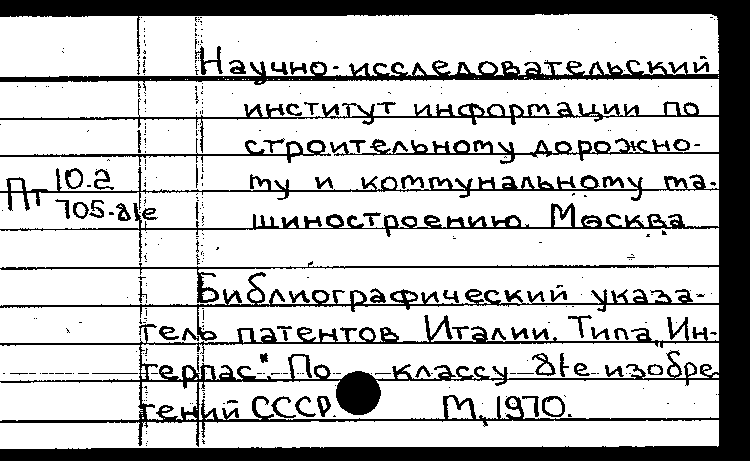 Научно-исследовательский
институт информации по
строительному дорожно-
му и коммунальному ма-
шиностроению. Москва
Пт 10.2
705-81е
Библиографический указа-
тель патентов Италии. Типа „Ин-
терпас". По классу 81е изобре
тений СССР М, 1970.